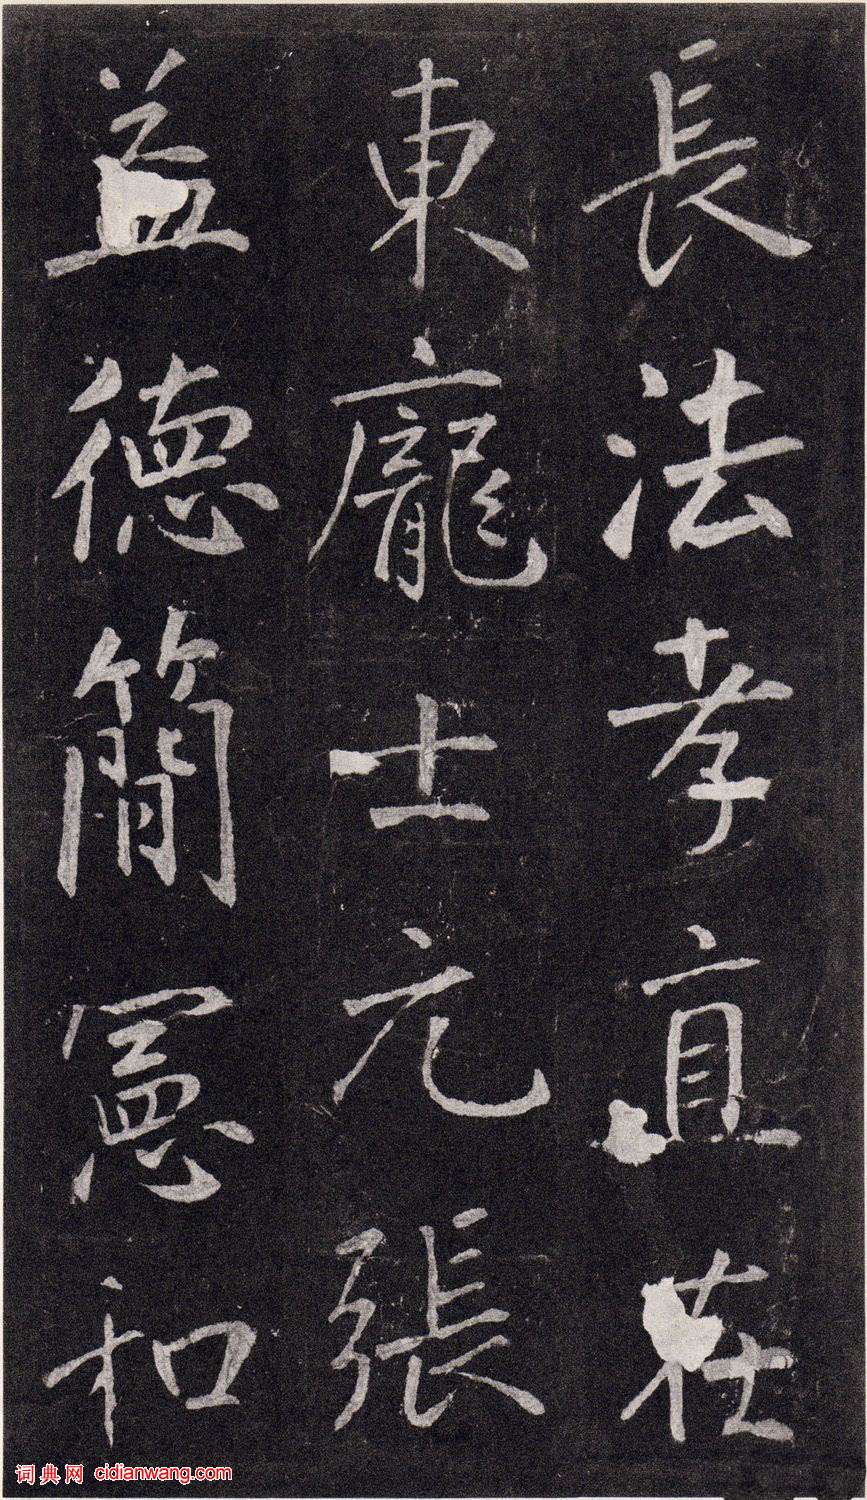 長法孝直在
東龐士元張
益德簡憲和
词典网 cidianwang.com